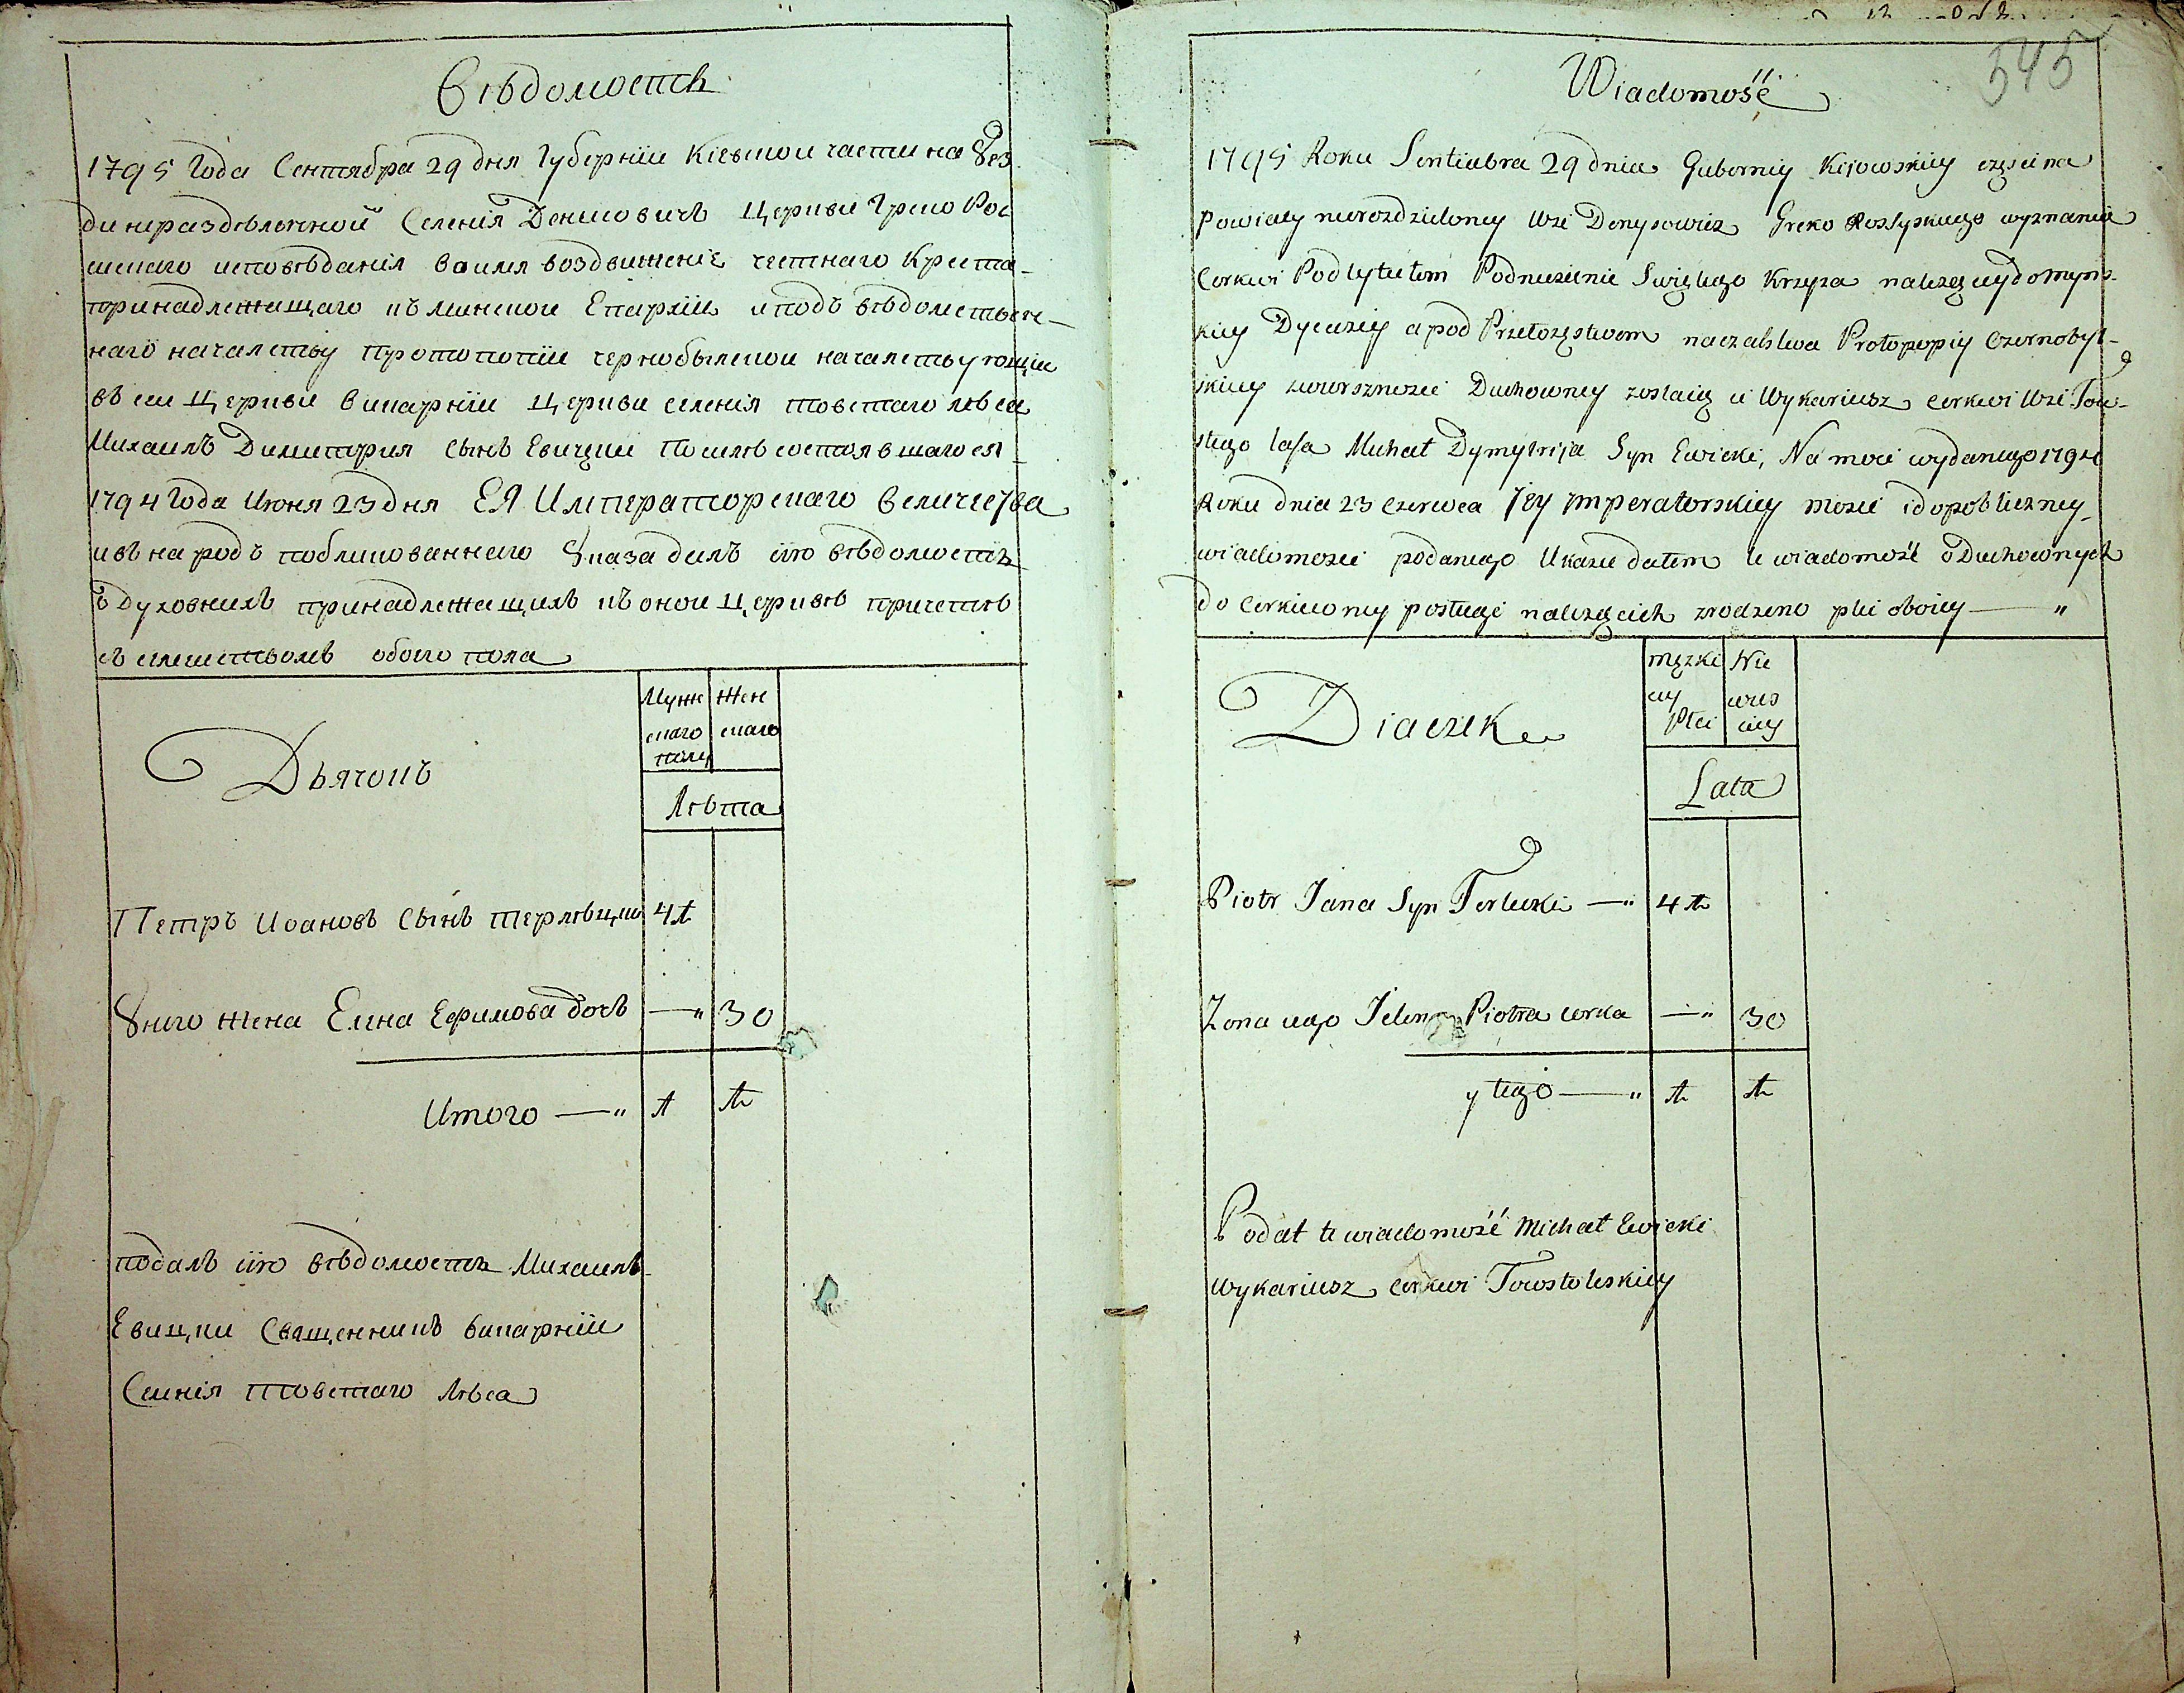 Вѣдомость
1795 Года Сентября 29 дня Губерніи Кіевской части на Уез
ди нераздѣленной Селенія Денисовичъ Церкви Греко Рос
сискаго исповѣданія во имя воздвиженіе честнаго Креста
принадлежащаго къ минской Епархіи и подъ вѣдомствен-
наго началству протопопіи чернобылской началствующіи
въ сеи Церкви викарніи Церкви селенія товстаго лѣса
Михаилъ Димитрия Сынъ Евицкии По силѣ состоявшагося
1794 Года Июня 23 дня ЕЯ Императорскаго Величества
и въ народъ побликованнаго Указа далъ сію вѣдомость
о Духовнихъ принадлежащихъ къ оной Церквѣ причетѣ
съ семействомъ обоего пола
Дьячокъ
Муж Жен
скаго скаго
полу
Лѣта
Петръ Иоановъ Сынъ терлѣцки 41
У него жена Елена Ефимова дочь —„ 30
Итого —„ 1 1
подалъ сію вѣдомость Михаилъ
Евицки Священникъ викарніи
Селенія товстаго Лѣса
545
Wiadomość
1795 Roku Sentiabra 29 dnia Guberniy Kijowskiey części na
Powiaty nierozdzieloney Wsi Denysowicz Greko Rossyskiego wyznania
Cerkwi Pod tytułem Podniesienie Swiętego Krzyża należącey do Mins-
kiey Dyecezyi a pod Przełożęstwom naczalstwa Protopopiy Czernobyl-
skiey zwierszności Duchowney zostaię ci Wykariusz cerkwi Wsi Tow-
stego lasa Michał Dymytrija Syn Ewicki, Na moci wydanego 1794
Roku dnia 23 Czerwca Jey Imperatorskiey mości i do publiczney
wiadomości podanego Ukazu dałem te wiadomość o Duchownych
do Cerkiewney posługi należących zrodzeno płci oboiey —„
Diaczek
męzki Nie
ey wies
Płci ciey
Lata
Piotr Jana Syn Terlecki —„ 41
Zona iego Jelena Piotra corka —„ 30
y tego —„ 1 1
Podał te wiadomość Michał Ewicki
Wykariusz cerkwi Towstoleskiey